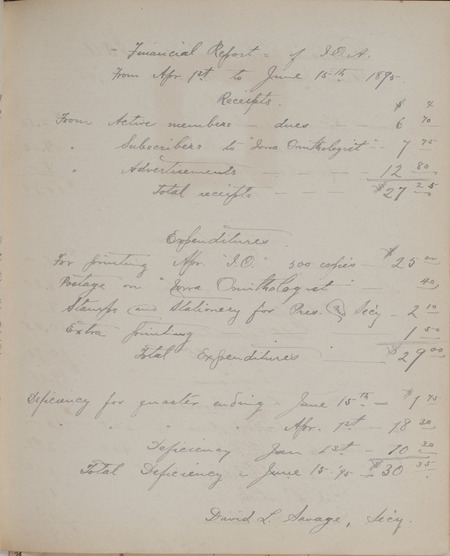 - Financial Report - of I.O.A.
From Apr 1st to June 15th 1895.
Receipts.
$ ¢
From Active members - dues - - - 6 70
" Subscribers to "Iowa Ornithologist" - 7 75
" Advertisements - - - - 12 80
Total receipts - - - - $27 25
Expenditures
For printing Apr. "I.O." 500 copies - $25 00
Postage on "Iowa Ornithologist" - 40
Stamps and Stationery for Pres. & Sécy - 2 10
Extra printing - 1 50
Total Expenditures - $29 00
Deficiency for quarter ending - June 15th - $1 75
" " " " Apr. 1st - 18 30
Deficiency Jan 1st - 10 30
Total Deficiency - June 15 '95 - $30 35
David L. Savage, Sécy.